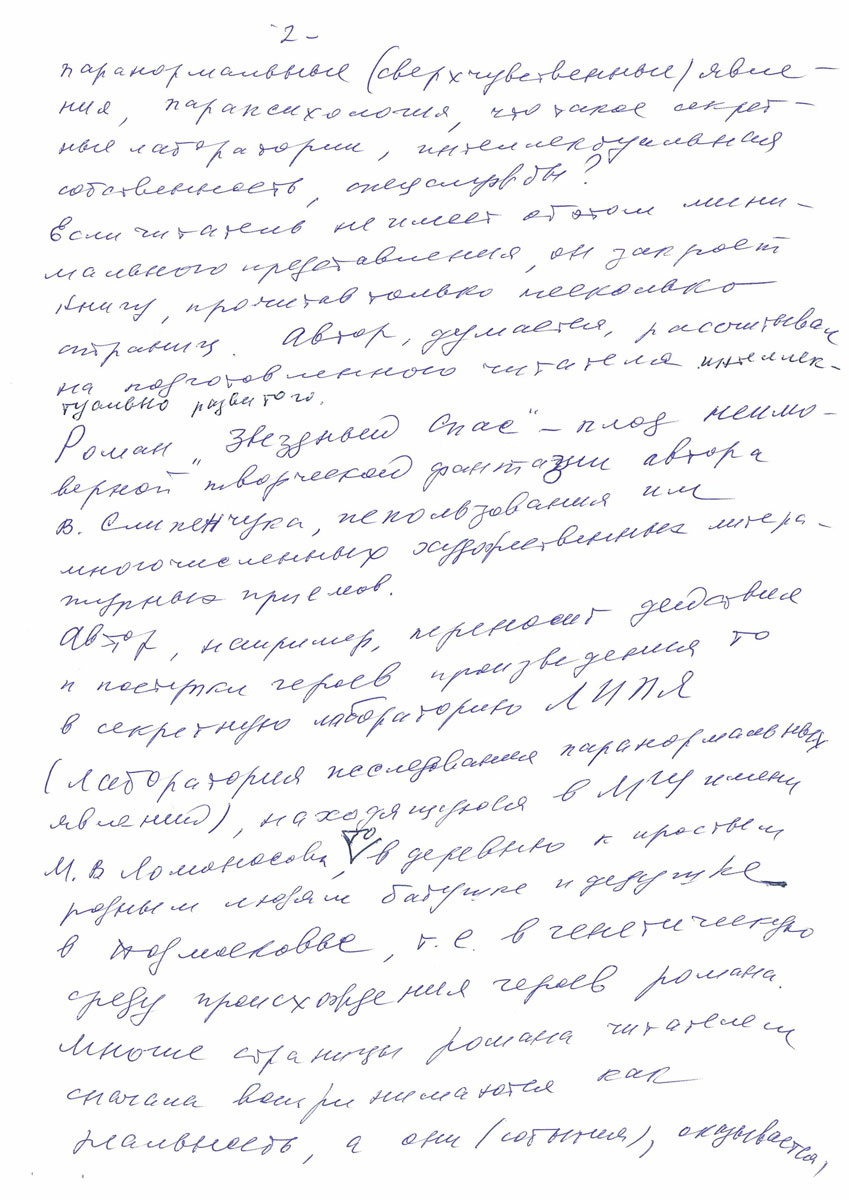 2-
паранормальные (сверхчувственные) явле-
ния, парапсихология, что такое секрет-
ные лаборатории, интеллектуальная
собственность, спецслужбы?
Если читатель не имеет об этом мини-
мального представления, он закроет
книгу, прочитав только несколько
страниц. Автор, думается, рассчитывал
на подготовленного читателя интеллек-
туально развитого.
Роман „Звездный Спас" – плод неимо-
верной творческой фантазии автора
В. Слипенчука, использования им
многочисленных художественных литера-
турных приемов.
Автор, например, переносит действия
и поступки героев произведения то
в секретную лабораторию ЛИПЯ
(лаборатория исследования паранормальных
явлений), находящуюся в МГУ имени
М. В Ломоносова, то в деревню к простым
родным людям бабушке и дедушке
в Подмосковье, т. е. в генетическую
среду происхождения героев романа.
Многие страницы романа читателем
сначала воспринимаются как
реальность, а они (события), оказывается,